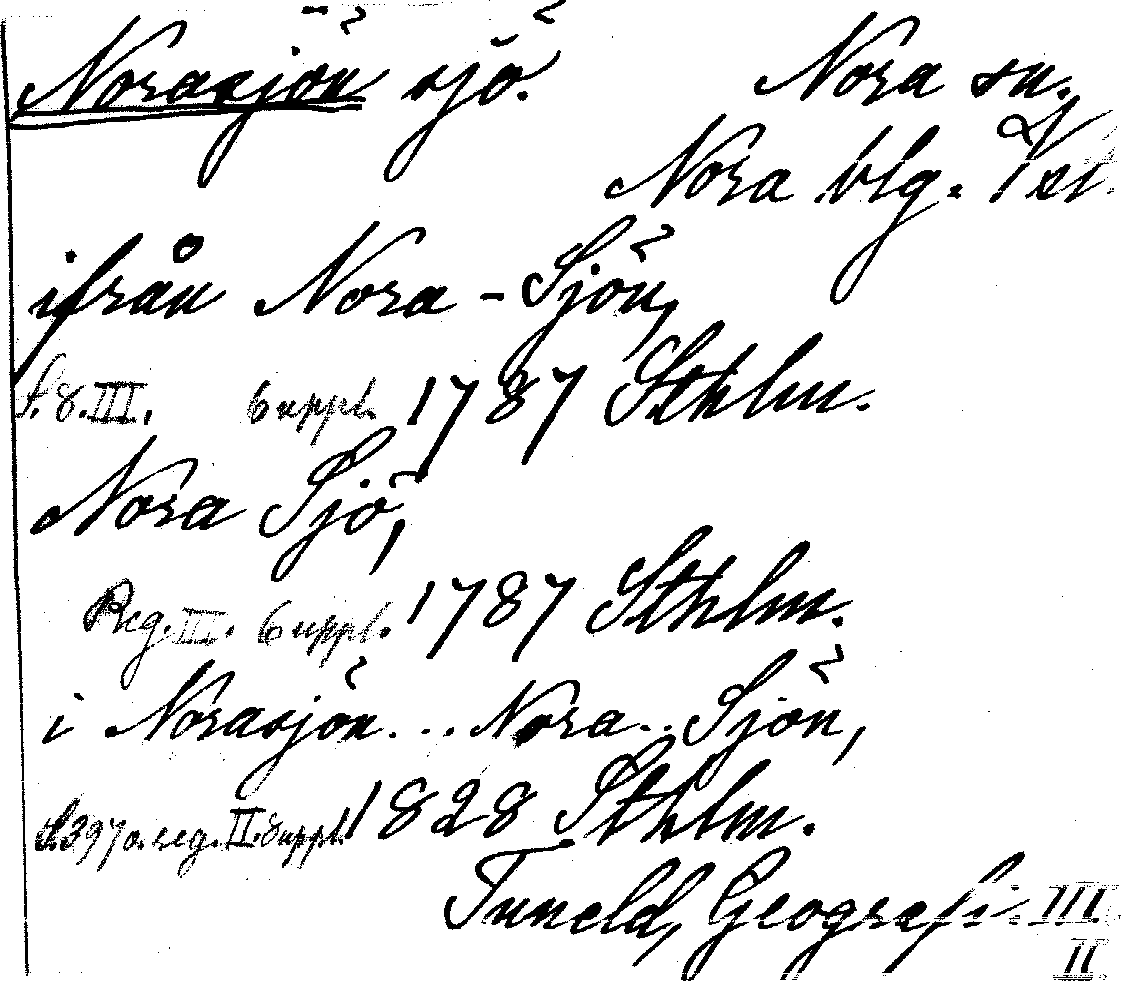 Norasjön sjö. Nora sn.
Nora blg. Vstl.
ifrån Nora-Sjön,
S. 8. III. 6 uppl. 1787 Sthlm.
Nora Sjö,
Reg. III. 6 uppl. 1787 Sthlm.
i Norasjön... Nora.. Sjön,
S. 397 o. reg. II. 8 uppl. 1828 Sthlm.
Tuneld, Geografi. III
II